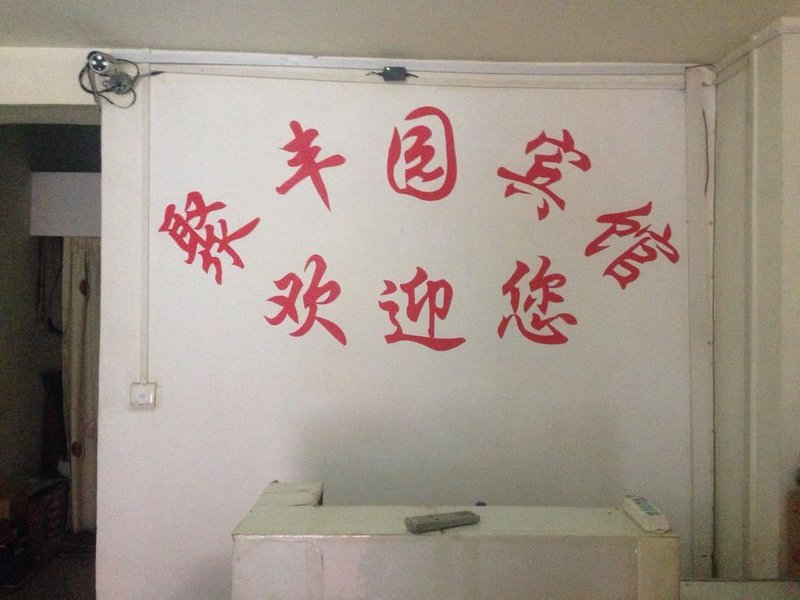 聚丰园宾馆
欢迎您